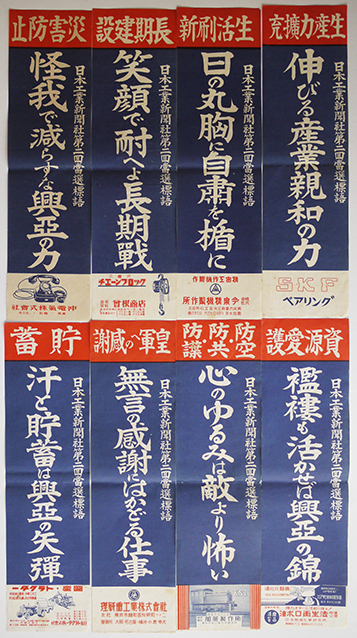 生産力擴充
日本工業新聞社第二回當選標語
伸びる産業親和の力
SKF
ベアリング
生活刷新
日本工業新聞社第二回當選標語
日の丸胸に自肅を楯に
長期建設
日本工業新聞社第二回當選標語
笑顔で耐へよ長期戰
チエーンブロック
災害防止
日本工業新聞社第二回當選標語
怪我で減らすな興亞の力
沖電氣株式會社
資源愛護
日本工業新聞社第二回當選標語
襤褸も活かせば興亞の錦
防空・防共・防諜
日本工業新聞社第二回當選標語
心のゆるみは敵より怖い
皇軍への感謝
日本工業新聞社第二回當選標語
無言の感謝にはかどる仕事
理研重工業株式會社
貯蓄
日本工業新聞社第二回當選標語
汗と貯蓄は興亞の矢彈